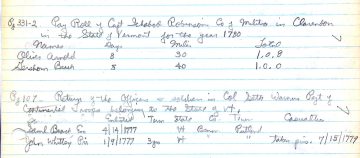 Pg 331-2 Pay Roll of Capt Ichabod Robinson Co of Militia in Clarendon
in the State of Vermont for the year 1780
Names Days Miles Total
Oliver Arnold 8 30 1.0.8
Gershom Beach 8 40 1.0.0
Pg 107 Return of the Officers & soldiers in Col Seth Warners Regt of
Continental troops belonging to the State of Vt.
Enlisted Term State Town Casualties
Saml Beach En 4/14/1777 Vt
John Whitley Pvt 1/9/1777 3 yrs " " taken pris. 7/15/1779